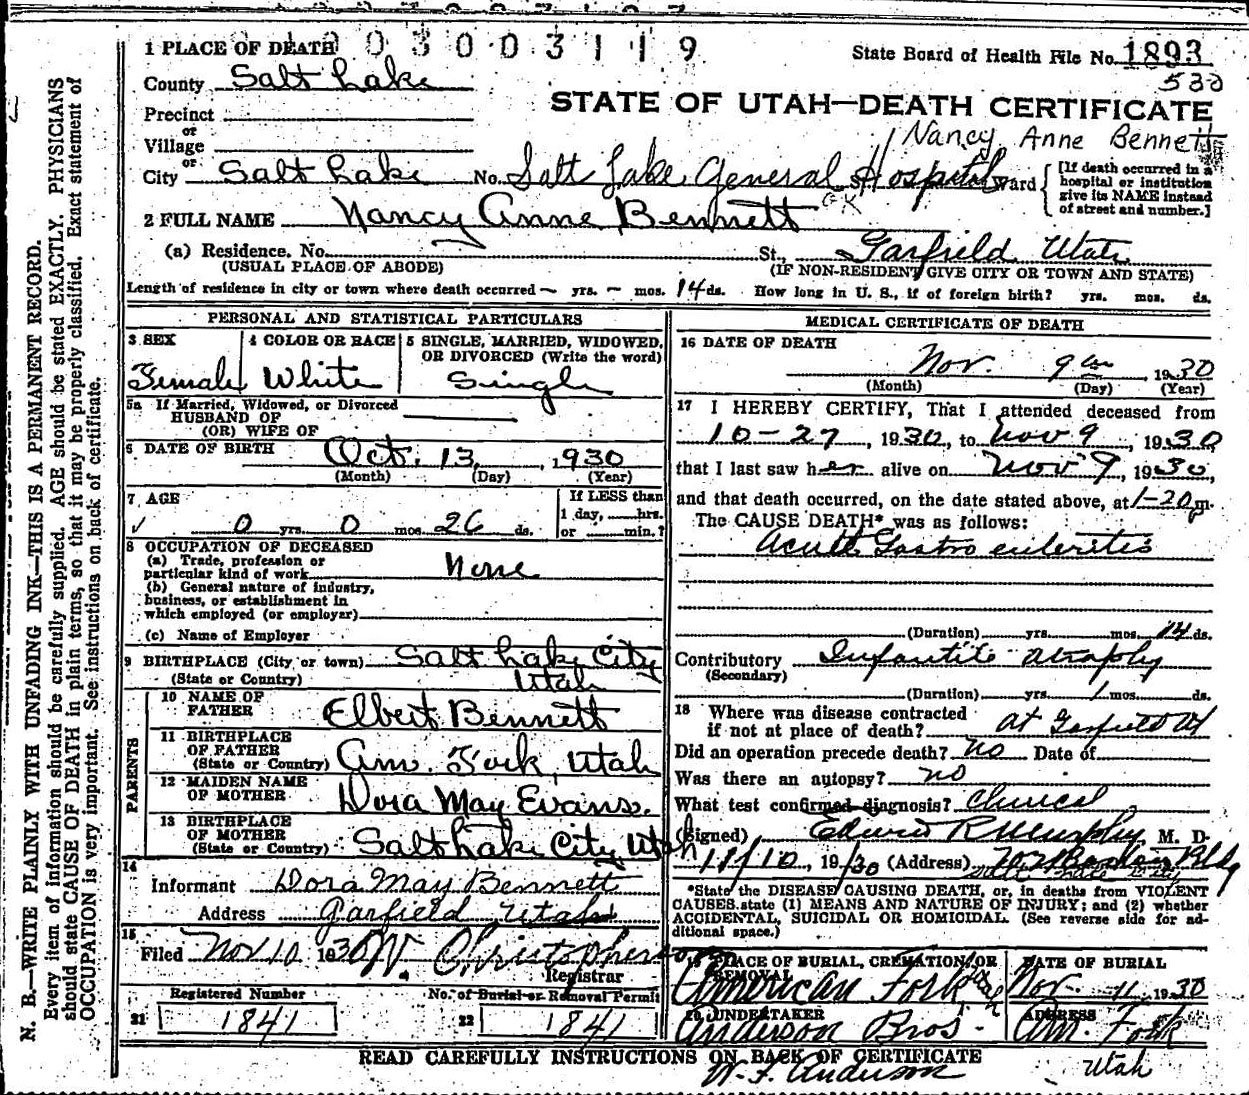 1 PLACE OF DEATH 003003119 State Board of Health File No. 1893
County Salt Lake 530
STATE OF UTAH—DEATH CERTIFICATE
Precinct
or
Village
Nancy Anne Bennett
or
City Salt Lake No. Salt Lake General Hospital St. Ward [If death occurred in a hospital or institution give its NAME instead of street and number.]
2 FULL NAME Nancy Anne Bennett
(a) Residence. No. St., Garfield Utah
(USUAL PLACE OF ABODE) (IF NON-RESIDENT GIVE CITY OR TOWN AND STATE)
Length of residence in city or town where death occurred – yrs. – mos. 14 ds. How long in U. S., if of foreign birth? yrs. mos. ds.
PERSONAL AND STATISTICAL PARTICULARS
3 SEX 4 COLOR OR RACE 5 SINGLE, MARRIED, WIDOWED, OR DIVORCED (Write the word)
Female White Single
5a If Married, Widowed, or Divorced
HUSBAND OF
(OR) WIFE OF
6 DATE OF BIRTH Oct. 13, 1930
(Month) (Day) (Year)
7 AGE If LESS than
1 day, hrs.
0 yrs. 0 mos. 26 ds. or min.?
8 OCCUPATION OF DECEASED
(a) Trade, profession or
particular kind of work None
(b) General nature of industry,
business, or establishment in
which employed (or employer)
(c) Name of Employer
9 BIRTHPLACE (City or town) Salt Lake City
(State or Country) Utah
PARENTS
10 NAME OF
FATHER Elbert Bennett
11 BIRTHPLACE
OF FATHER
(State or Country) Am. Fork, Utah
12 MAIDEN NAME
OF MOTHER Dora May Evans.
13 BIRTHPLACE
OF MOTHER
(State or Country) Salt Lake City Utah
14
Informant Dora May Bennett
Address Garfield Utah
15
Filed Nov 10 1930 W. Christopherson
Registrar
Registered Number No. of Burial or Removal Permit
21 1841 22 1841
MEDICAL CERTIFICATE OF DEATH
16 DATE OF DEATH
Nov. 9th, 1930
(Month) (Day) (Year)
17 I HEREBY CERTIFY, That I attended deceased from
10-27, 1930, to Nov 9, 1930,
that I last saw her alive on Nov 9, 1930,
and that death occurred, on the date stated above, at 1-20 p m.
The CAUSE DEATH* was as follows:
Acute Gastro enteritis
(Duration) yrs. mos. 14 ds.
Contributory Infantile atrophy
(Secondary)
(Duration) yrs. 1 mos. ds.
18 Where was disease contracted
if not at place of death? at Garfield Ut
Did an operation precede death? no Date of
Was there an autopsy? no
What test confirmed diagnosis? Clinical
(Signed) Edwin R Murphy M. D.
11/10, 19/30 (Address) Bldg
*State the DISEASE CAUSING DEATH, or, in deaths from VIOLENT
CAUSES state (1) MEANS AND NATURE OF INJURY; and (2) whether
ACCIDENTAL, SUICIDAL OR HOMICIDAL. (See reverse side for ad-
ditional space.)
19 PLACE OF BURIAL, CREMATION, OR REMOVAL DATE OF BURIAL
American Fork Nov. 11, 1930
20 UNDERTAKER ADDRESS
Anderson Bros. Am. Fork
READ CAREFULLY INSTRUCTIONS ON BACK OF CERTIFICATE
W. F. Anderson Utah
N. B.—WRITE PLAINLY WITH UNFADING INK—THIS IS A PERMANENT RECORD.
Every item of information should be carefully supplied. AGE should be stated EXACTLY. PHYSICIANS
should state CAUSE OF DEATH in plain terms, so that it may be properly classified. Exact statement of
OCCUPATION is very important. See instructions on back of certificate.